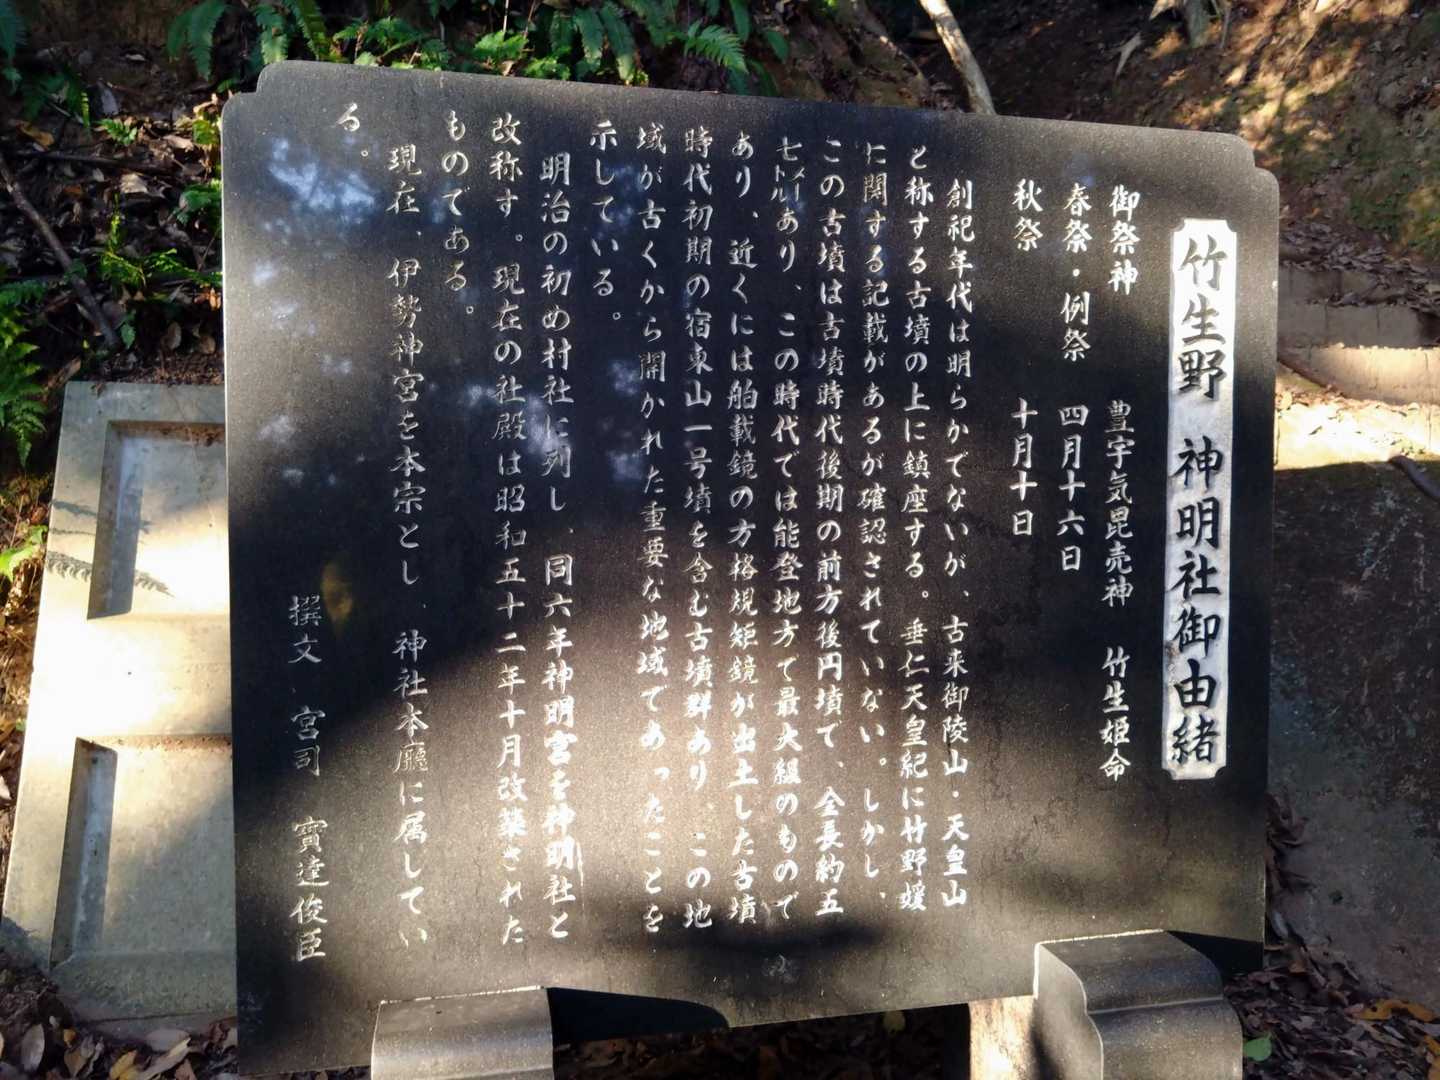 竹生野 神明社御由緒
御祭神 豊宇気毘売神 竹生姫命
春祭・例祭 四月十六日
秋祭 十月十日
創祀年代は明らかでないが、古来御陵山・天皇山
と称する古墳の上に鎮座する。垂仁天皇紀に竹野媛
に関する記載があるが確認されていない。しかし、
この古墳は古墳時代後期の前方後円墳で、全長約五
七メートルあり、この時代では能登地方で最大級のもので
あり、近くには舶載鏡の方格規矩鏡が出土した古墳
時代初期の宿東山一号墳を含む古墳群あり、この地
域が古くから開かれた重要な地域であったことを
示している。
明治の初め村社に列し、同六年神明宮を神明社と
改称す。現在の社殿は昭和五十二年十月改築された
ものである。
現在、伊勢神宮を本宗とし、神社本廳に属してい
る。
撰文 宮司 寳達俊臣